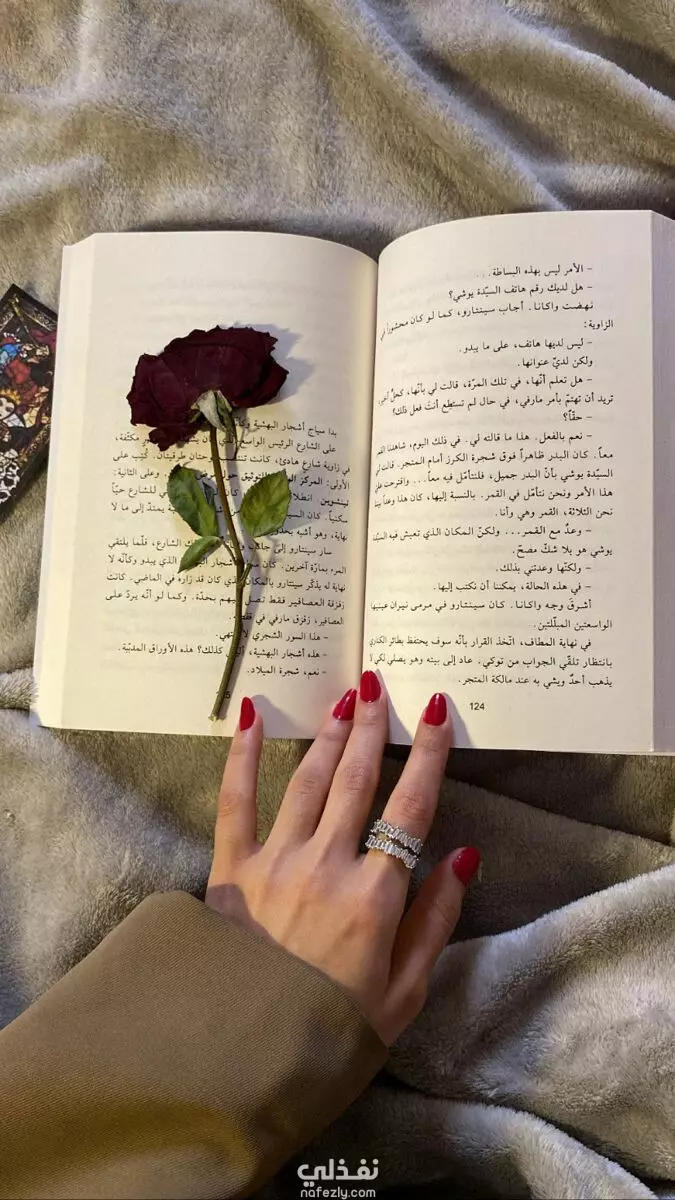 – الأمر ليس بهذه البساطة...
– هل لديك رقم هاتف السيّدة يوشي؟
نهضت واكانا. أجاب سينتارو، كما لو كان محشوراً في
الزاوية:
– ليس لديها هاتف، على ما يبدو.
ولكن لديّ عنوانها.
– هل تعلم أنّها، في تلك المرّة، قالت لي بأنّها، كحلّ أخير،
تريد أن تهتمّ بأمر مارفي، في حال لم تستطِع أنتَ فعل ذلك؟
– حقّاً؟
– نعم بالفعل. هذا ما قالته لي. في ذلك اليوم، شاهدنا القمر
معاً. كان البدر ظاهراً فوق شجرة الكرز أمام المتجر. قالت لي
السيّدة يوشي بأنّ البدر جميل، فلنتأمّل فيه معاً... واقترحت عليّ
هذا الأمر ونحن نتأمّل في القمر. بالنسبة إليها، كان هذا وعداً بيننا
نحن الثلاثة، القمر وهي وأنا.
– وعدٌ مع القمر... ولكنّ المكان الذي تعيش فيه السيّدة
يوشي هو بلا شكّ مصحّ.
– ولكنّها وعدتني بذلك.
– في هذه الحالة، يمكننا أن نكتب إليها.
أشرقَ وجه واكانا. كان سينتارو في مرمى نيران عينيها
الواسعتين المبلّلتين.
في نهاية المطاف، اتّخذ القرار بأنّه سوف يحتفظ بطائر الكناري
بانتظار تلقّي الجواب من توكي. عاد إلى بيته وهو يصلي لكي لا
يذهب أحدٌ ويشي به عند مالكة المتجر.
124
بدا سياج أشجار البهشية وكأنّه
على الشارع الرئيس الواسع الذي كان مكثّفة،
في زاوية شارع هادئ، كانت تنتصب لوحتان طرقيتان. كُتِب على
الأولى: المركز الوثوثيق حول وعلى الثانية:
تينشوين انطلاقاً كان للشارع حيّاً
سكنياً. كان السياج يمتدّ إلى ما لا
نهاية، وهو أشبه بحدّ
سار سينتارو إلى جانب الشارع، قلّما يلتقي
المرء بمارّة آخرين. كان أشجار الذي يبدو وكأنّه لا
نهاية له يذكّر سينتارو بالمكان الذي كان قد زاره في الماضي. كانت
زقزقة العصافير فقط تصل إليهم بحدّة. وكما لو أنّه يردّ على
العصافير، زقزق مارفي في
– هذا السور الشجري لا ينتهي.
– هذه أشجار البهشية، أليس كذلك؟ هذه الأوراق المدبّبة.
– نعم، شجرة الميلاد.
نفذلي
nafezly.com